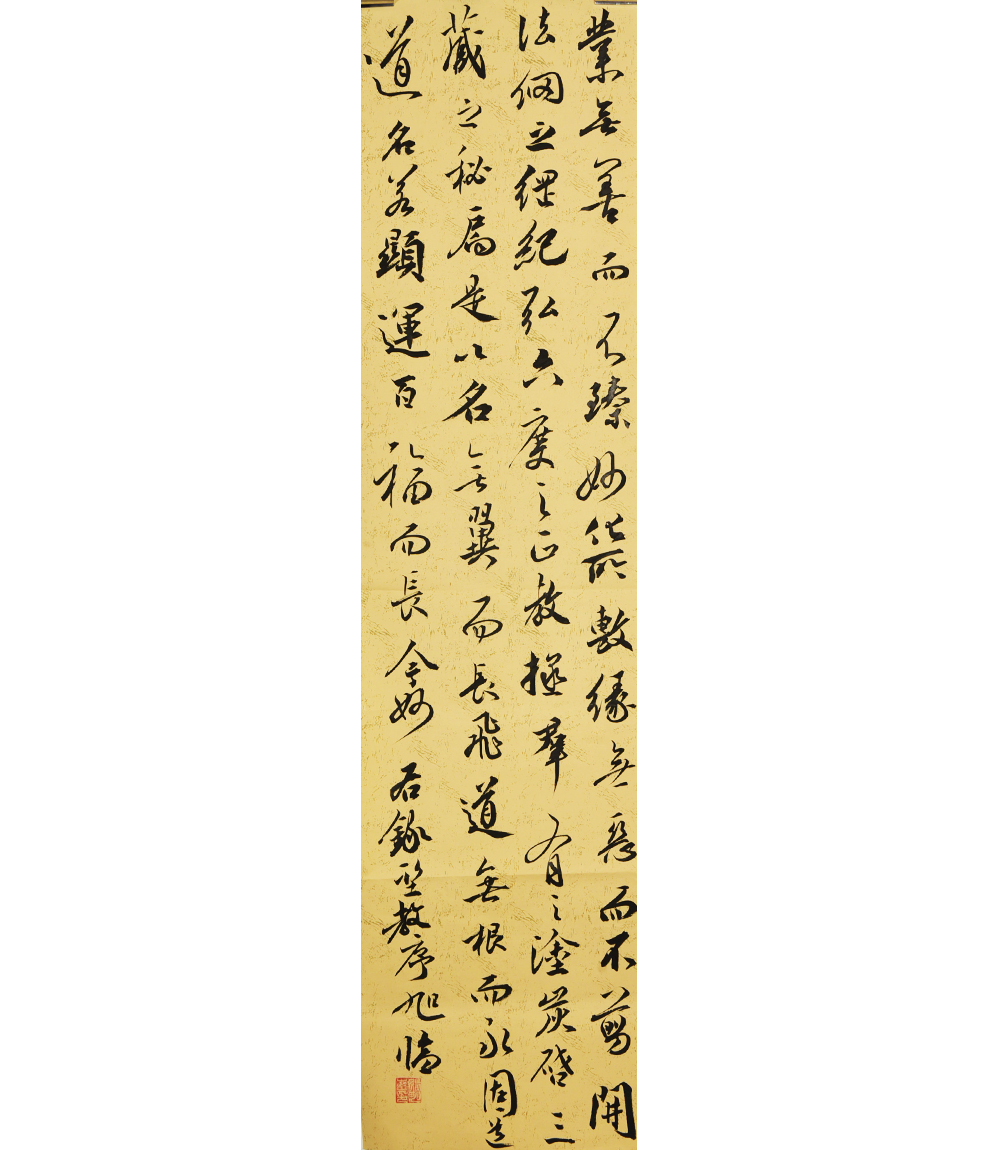 業無善而不臻妙化所敷緣無惡而不翦開
法網之綱紀弘六度之正教拯群有之塗炭啟三
藏之秘扃是以名無翼而長飛道無根而永固
道名若顯運百福而長今妙右錄聖教序旭臨